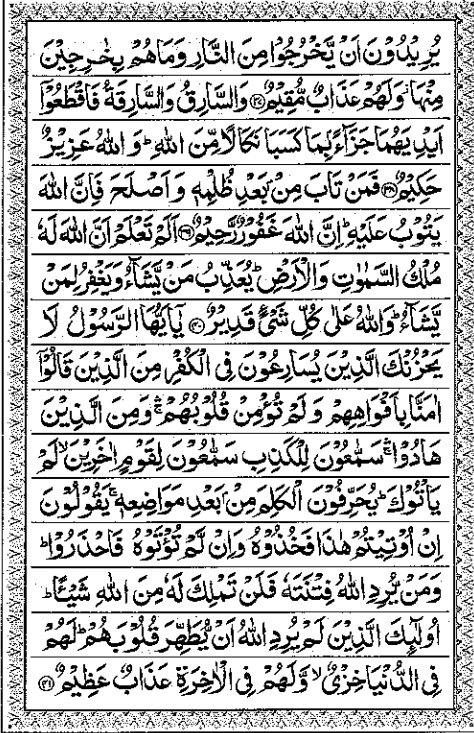 يُرِيْدُوْنَ اَنْ يَّخْرُجُوْا مِنَ النَّارِ وَمَا هُمْ بِخٰرِجِيْنَ
مِنْهَا وَلَهُمْ عَذَابٌ مُّقِيْمٌ ۝۳۷ وَالسَّارِقُ وَالسَّارِقَةُ فَاقْطَعُوْٓا
اَيْدِيَهُمَا جَزَآءًۢ بِمَا كَسَبَا نَكَالًا مِّنَ اللهِ ؕ وَ اللهُ عَزِيْزٌ
حَكِيْمٌ ۝۳۸ فَمَنْ تَابَ مِنْۢ بَعْدِ ظُلْمِهٖ وَ اَصْلَحَ فَاِنَّ اللهَ
يَتُوْبُ عَلَيْهِ ؕ اِنَّ اللهَ غَفُوْرٌ رَّحِيْمٌ ۝۳۹ اَلَمْ تَعْلَمْ اَنَّ اللهَ لَهٗ
مُلْكُ السَّمٰوٰتِ وَ الْاَرْضِ ؕ يُعَذِّبُ مَنْ يَّشَآءُ وَيَغْفِرُ لِمَنْ
يَّشَآءُ ؕ وَاللهُ عَلٰى كُلِّ شَيْءٍ قَدِيْرٌ ۝۴۰ يٰٓاَيُّهَا الرَّسُوْلُ لَا
يَحْزُنْكَ الَّذِيْنَ يُسَارِعُوْنَ فِى الْكُفْرِ مِنَ الَّذِيْنَ قَالُوْٓا
اٰمَنَّا بِاَفْوَاهِهِمْ وَ لَمْ تُؤْمِنْ قُلُوْبُهُمْ ۛۚ وَمِنَ الَّذِيْنَ
هَادُوْا ۛۚ سَمّٰعُوْنَ لِلْكَذِبِ سَمّٰعُوْنَ لِقَوْمٍ اٰخَرِيْنَ ۙ لَمْ
يَاْتُوْكَ ؕ يُحَرِّفُوْنَ الْكَلِمَ مِنْۢ بَعْدِ مَوَاضِعِهٖ ۚ يَقُوْلُوْنَ
اِنْ اُوْتِيْتُمْ هٰذَا فَخُذُوْهُ وَاِنْ لَّمْ تُؤْتَوْهُ فَاحْذَرُوْا ؕ
وَمَنْ يُّرِدِ اللهُ فِتْنَتَهٗ فَلَنْ تَمْلِكَ لَهٗ مِنَ اللهِ شَيْـًٔا ؕ
اُولٰٓئِكَ الَّذِيْنَ لَمْ يُرِدِ اللهُ اَنْ يُّطَهِّرَ قُلُوْبَهُمْ ؕ لَهُمْ
فِى الدُّنْيَا خِزْىٌ ۙ وَّ لَهُمْ فِى الْاٰخِرَةِ عَذَابٌ عَظِيْمٌ ۝۴۱